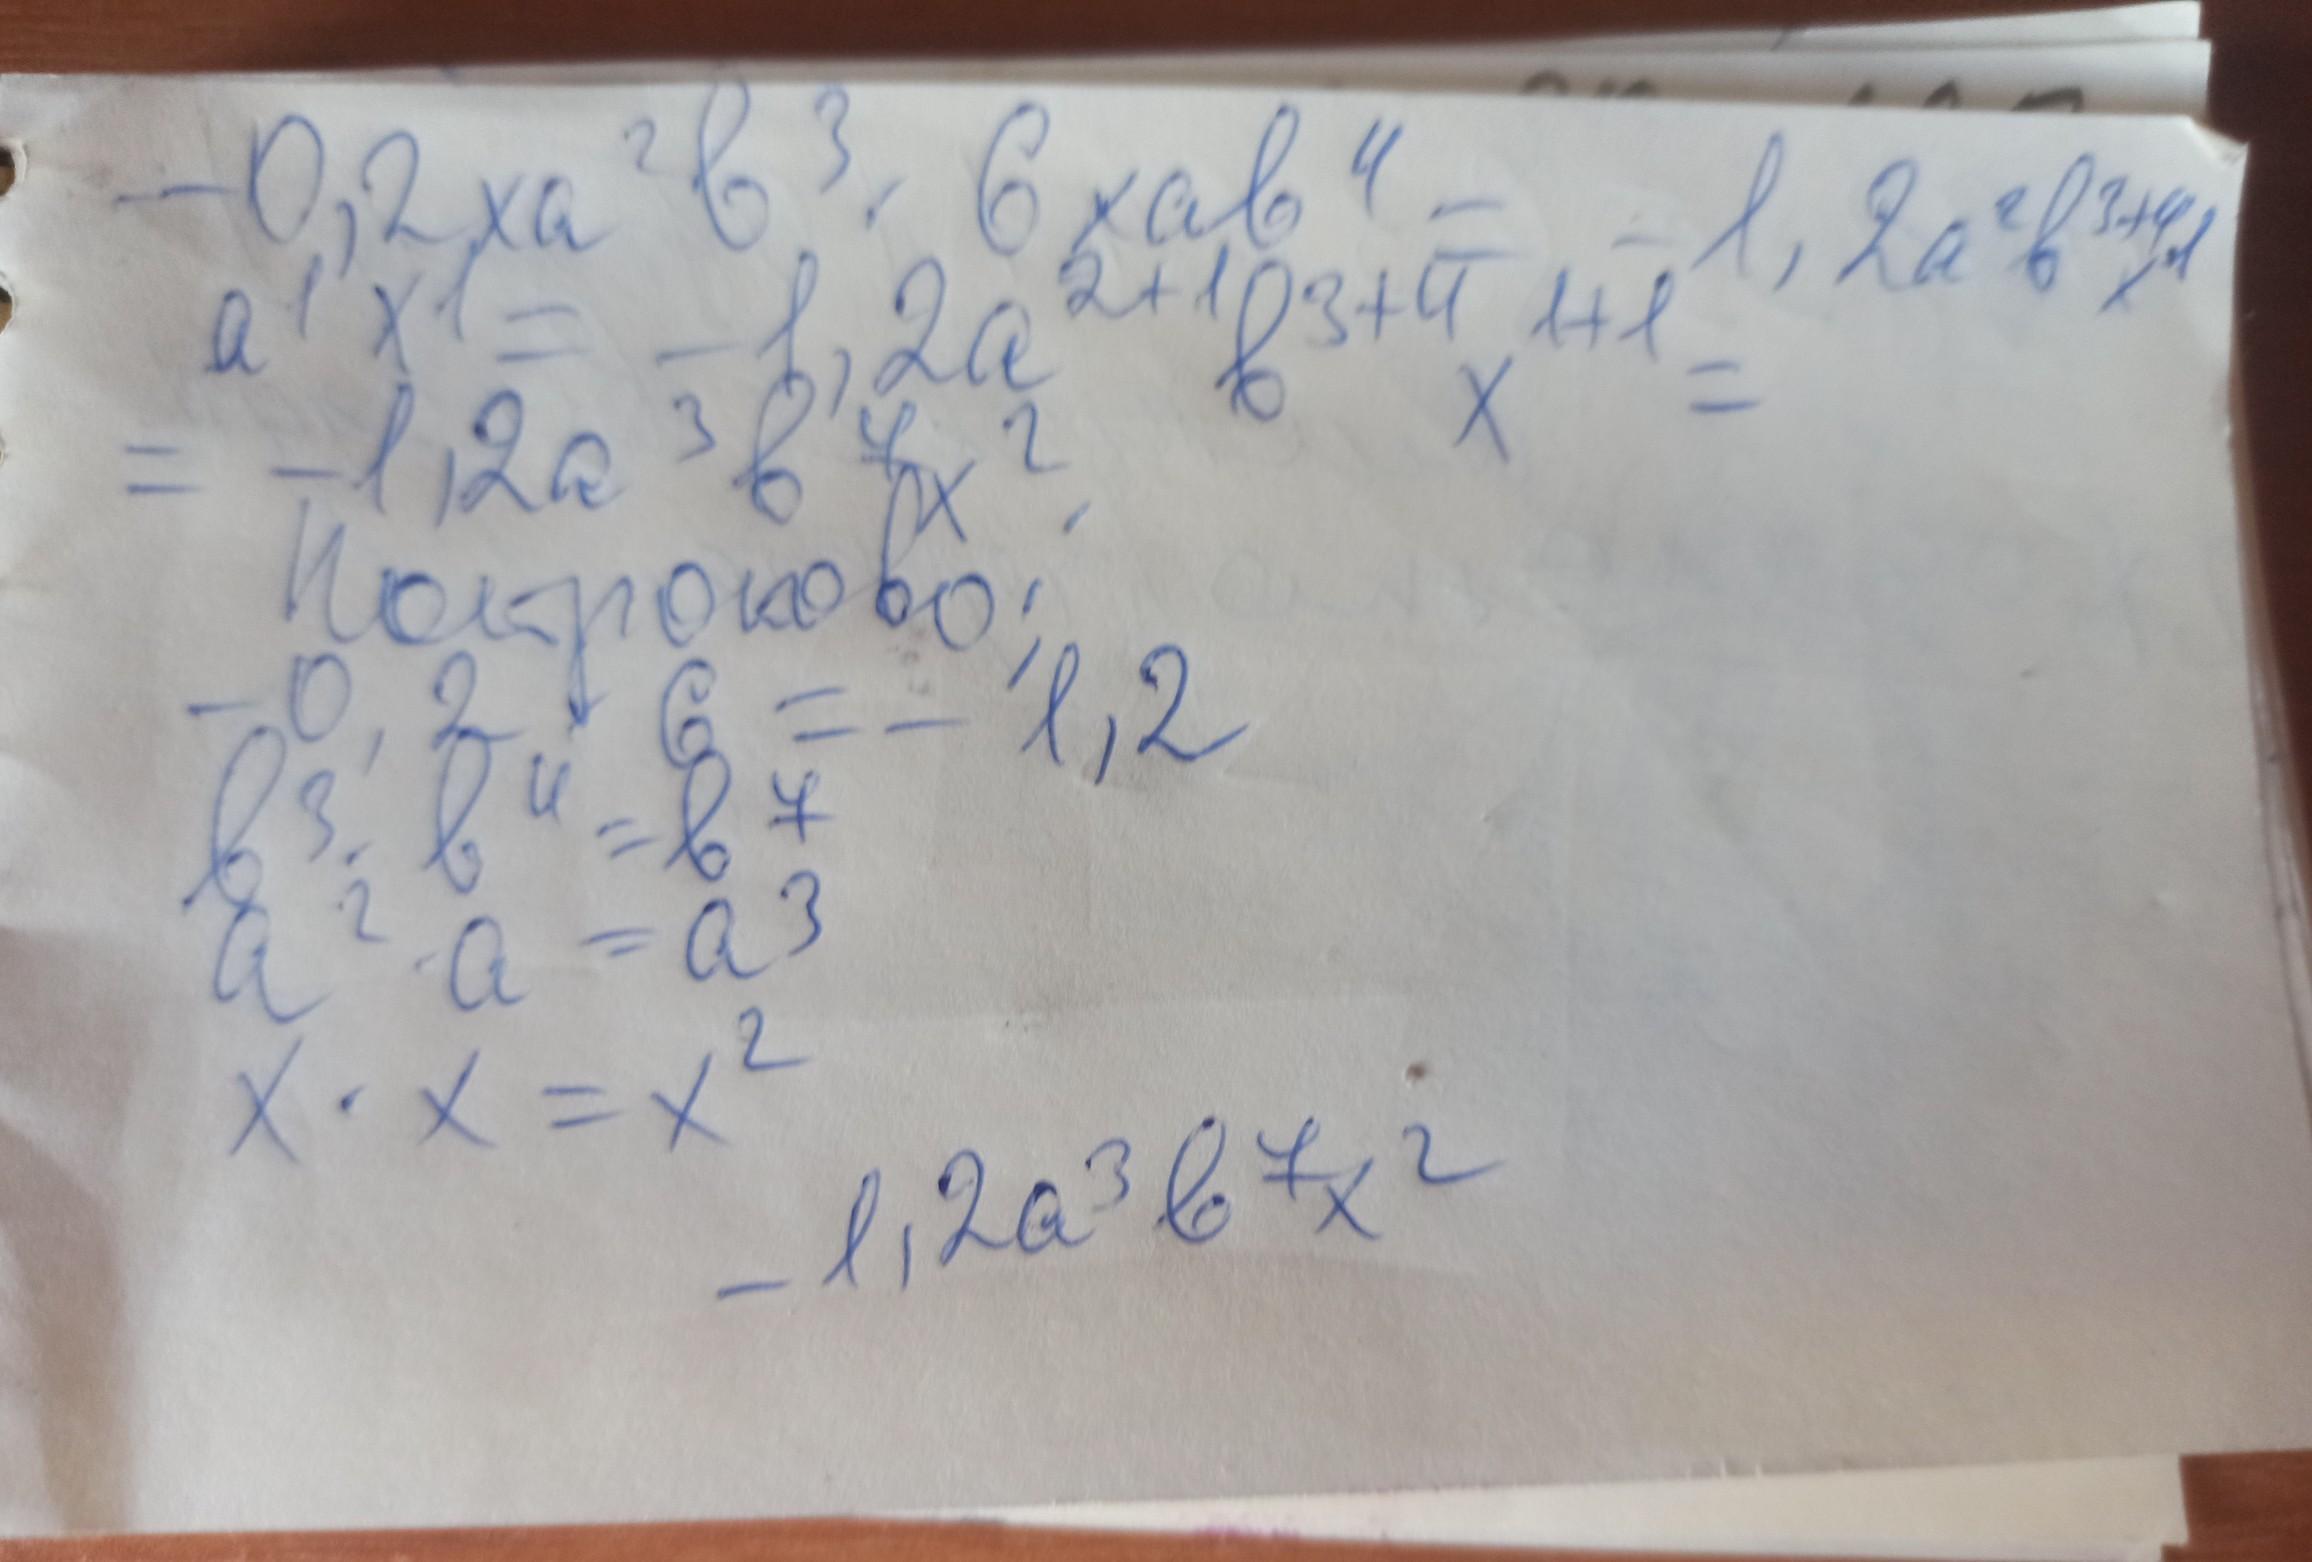 -0,2xa²b³ · 6xab⁴ = -1,2a²b³⁺⁴x¹
a¹x¹ = -1,2a²⁺¹b³⁺⁴x¹⁺¹ =
= -1,2a³b⁷x².
Покроково:
-0,2 · 6 = -1,2
b³ · b⁴ = b⁷
a² · a = a³
x · x = x²
-1,2a³b⁷x²